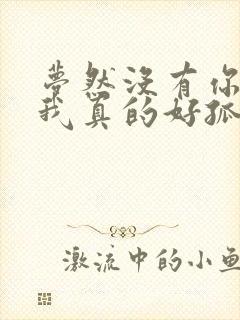 梦然没有你
我真的好孤
激流中的小鱼